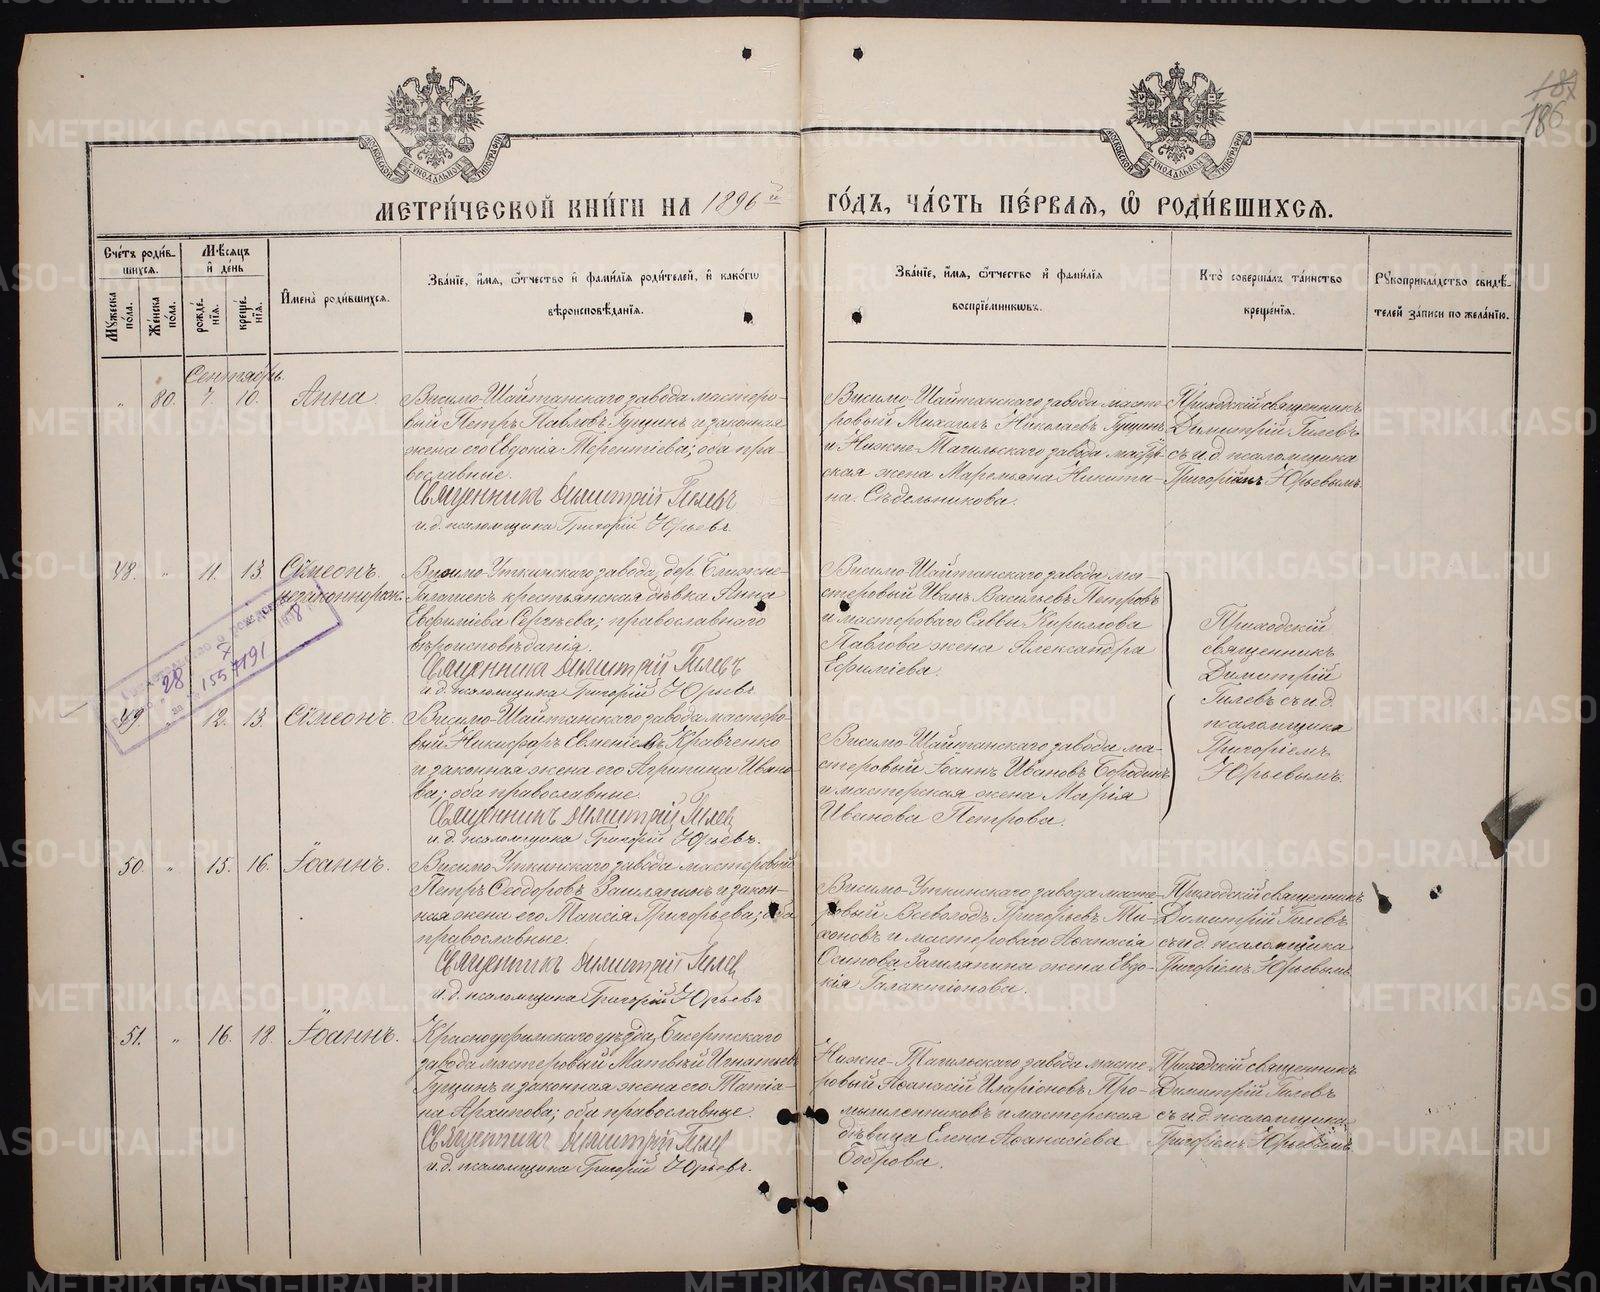 187
186
МЕТРИ́ЧЕСКОЙ КНИ́ГИ НА 1896й ГО́ДЪ, ЧА́СТЬ ПЕ́РВАЯ, Ѡ҆ РОДИ́ВШИХСЯ.
Сче́тъ роди́вшихся.
Му́жеска по́ла.
Же́нска по́ла.
Мѣ́сяцъ и҆ день
рожде́нїя.
креще́нїя.
И҆мена̀ роди́вшихся.
Зва́нїе, и҆́мя, ѻ҆́тчество и҆ фами́лїя роди́телей, и҆ како́гѡ
вѣроисповѣ́данїя.
Зва́нїе, и҆́мя, ѻ҆́тчество и҆ фами́лїя
воспрїе́мникѡвъ.
Кто̀ соверша́лъ та́инство
креще́нїя.
Рꙋкоприкла́дство свидѣ́-
телей за́писи по жела́нїю.
Сентябрь.
" 80. 7. 10. Анна
Висимо-Шайтанскаго завода мастеро-
вый Петръ Павловъ Гущинъ и законная
жена его Евдокія Терентіева; оба пра-
вославные.
Священникъ Димитрій Гилевъ
и.д. псаломщика Григорій Юрьевъ
Висимо-Шайтанскаго завода масте-
ровый Михаилъ Николаевъ Гущинъ
и Нижне-Тагильскаго завода мастер-
ская жена Маремьяна Никити-
на Сѣдельникова.
Приходскій священникъ
Димитрій Гилевъ
съ и.д. псаломщика
Григоріемъ Юрьевымъ
48. " 11. 13. Сѵмеонъ
незаконнорож.
Висимо-Уткинскаго завода, дер. Ближне-
Галашекъ крестьянская дѣвка Анна
Евфиміева Сергѣева; православнаго
вѣроисповѣданія.
Священникъ Димитрій Гилевъ
и.д. псаломщика Григорій Юрьевъ
Висимо-Шайтанскаго завода ма-
стеровый Иванъ Васильевъ Петровъ
и мастероваго Саввы Кириллова
Павлова жена Александра
Ефиміева.
Приходскій
священникъ
Димитрій
Гилевъ съ и.д.
псаломщика
Григоріемъ
Юрьевымъ.
28 X 1958
155.7191
49 " 12. 13. Сѵмеонъ.
Висимо-Шайтанскаго завода мастеро-
вый Никифоръ Евменіевъ Кравченко
и законная жена его Агрипина Ивано-
ва; оба православные.
Священникъ Димитрій Гилевъ
и.д. псаломщика Григорій Юрьевъ.
Висимо-Шайтанскаго завода ма-
стеровый Іоаннъ Ивановъ Бородинъ
и мастерская жена Марія
Иванова Петрова.
50. " 15. 16. Іоаннъ.
Висимо-Уткинскаго завода мастеровый
Петръ Сидоровъ Зашляпинъ и закон-
ная жена его Таисія Григорьева; оба
православные.
Священникъ Димитрій Гилевъ
и.д. псаломщика Григорій Юрьевъ
Висимо-Уткинскаго завода масте-
ровый Всеволодъ Григорьевъ Ти-
хоновъ и мастероваго Аѳанасія
Осипова Зашляпина жена Евдо-
кія Галактіонова.
Приходскій священникъ
Димитрій Гилевъ
съ и.д. псаломщика
Григоріемъ Юрьевымъ
51. " 16. 18. Іоаннъ.
Красноуфимскаго уѣзда, Бисертскаго
завода мастеровый Матвѣй Игнатьевъ
Гущинъ и законная жена его Татіа-
на Архипова; оба православные.
Священникъ Димитрій Гилевъ
и.д. псаломщика Григорій Юрьевъ.
Нижне-Тагильскаго завода масте-
ровый Аѳанасій Иларіоновъ Про-
мышленниковъ и мастерская
дѣвица Елена Аѳанасіева
Боброва.
Приходскій священникъ
Димитрій Гилевъ
съ и.д. псаломщика
Григоріемъ Юрьевымъ
METRIKI.GASO-URAL.RU